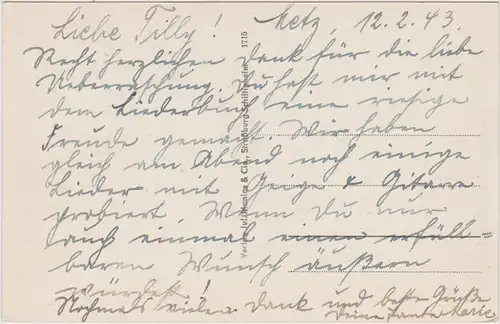 Liebe Tilly! Metz, 12.2.43.
Recht herzlichen Dank für die liebe
Ueberraschung. Du hast mir mit
dem Liederbuch eine riesige
Freude gemacht. Wir haben
gleich am Abend noch einige
Lieder mit Geige & Gitarre
probiert. Wenn Du nur
auch einmal einen erfüll-
baren Wunsch äußern
würdest!
Nochmals vielen Dank und beste Grüße
Deine Tante Marie
1715
& Cie., Strasbourg-Schiltigheim